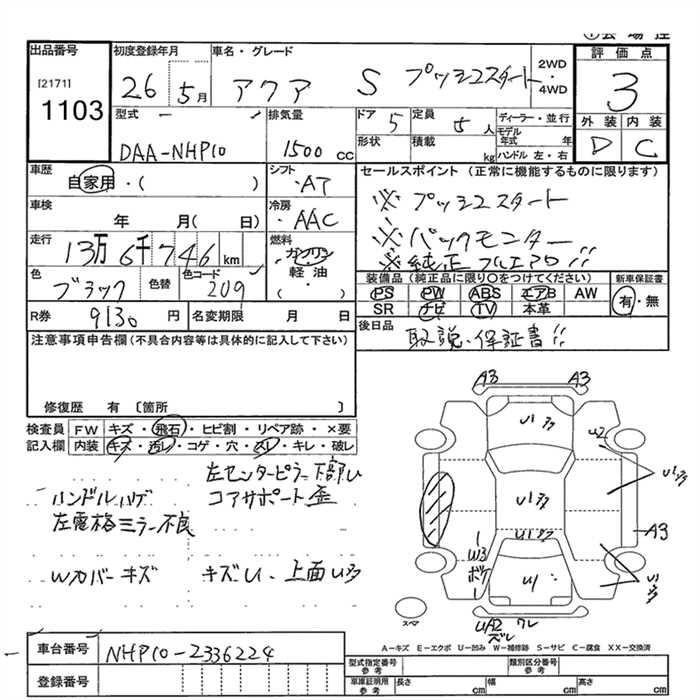 出品番号
[2171]
1103
初度登録年月
26 5月
車名・グレード
アクア S プッシュスタート
2WD
・
4WD
評価点
3
外装 内装
D C
型式
DAA-NHP10
排気量
1500 CC
ドア
5
定員
5人
ディーラー・並行
モデル年式 年
ハンドル 左・右
形状
積載
kg
車歴
自家用・( )
シフト
・AT
車検
年 月( 日)
冷房
・AAC
走行
13万6千746km
燃料
ガソリン
軽油
・( )
色
ブラック
色替
色コード
209
R券
9130 円
名変期限 月 日
セールスポイント (正常に機能するものに限ります)
※プッシュスタート
※バックモニター
※純正フルエアロ!!
装備品 (純正品に限り〇をつけてください)
新車保証書
PS PW ABS エアB AW
有・無
SR ナビ TV 本革
後日品
取説・保証書!!
注意事項申告欄(不具合内容等は具体的に記入して下さい)
修復歴 有 〔箇所 〕
検査員
記入欄
FW キズ・飛石・ヒビ割・リペア跡・×要
内装 キズ・汚レ・コゲ・穴・スレ・キレ・破レ
左センターピラー下部U
ハンドルハゲ コアサポート歪
左電格ミラー不良
Wカバーキズ キズU・上面U多
A3 A3
U1多
U2
U1多
U1多
A3
U1多
W3
ボケ
U1
U1多
UA2 ワレ
ズレ
スペア
A-キズ E-エクボ U-凹み W-補修跡 S-サビ C-腐食 XX-交換済
車台番号
NHP10-2336224
登録番号
型式指定番号
参考
類別区分番号
参考
車庫証明用
参考
長さ cm 幅 cm 高さ cm